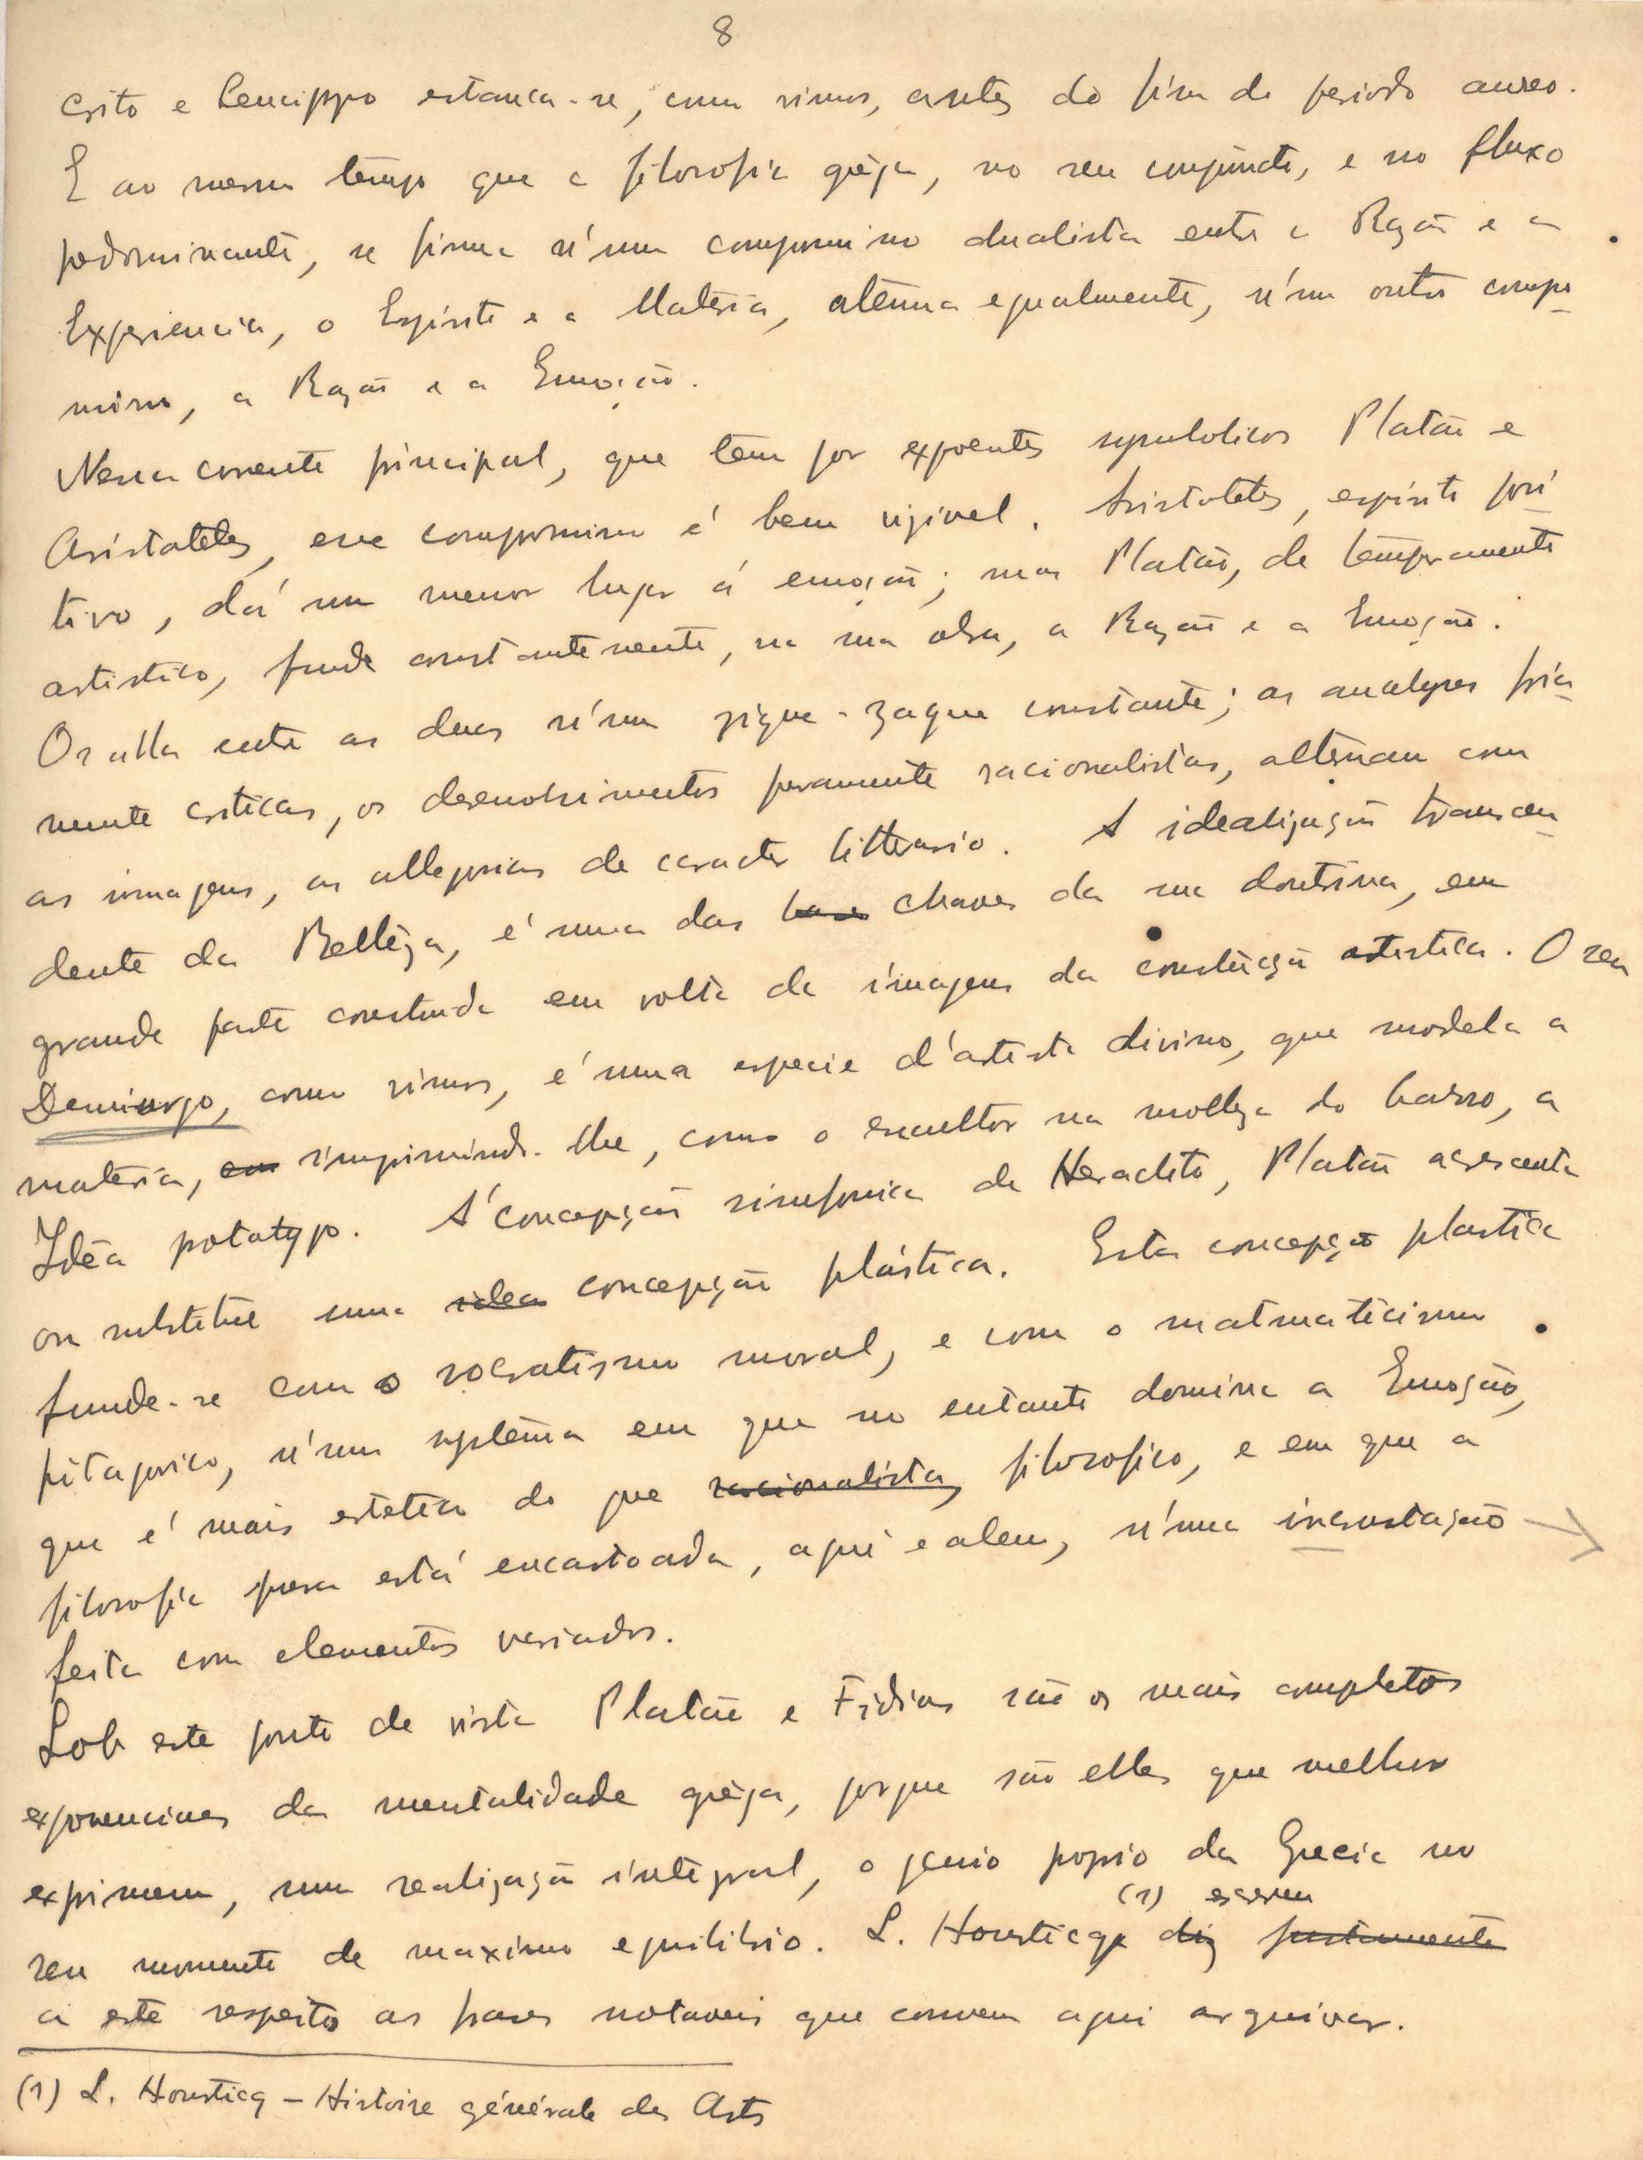 8
crito e Leucippo estanca-se, como vimos, antes do fim do periodo aureo.
E ao mesmo tempo que a filosofia grêga, no seu conjuncto, e no fluxo
predominante, se firma n'um compromisso dualista entre a Razão e a
Experiencia, o Espirito e a Materia, aterma egualmente, n'um outro compro-
misso, a Razão e a Emoção.
Nessa corrente principal, que tem por expoentes symbolicos Platão e
Aristoteles, esse compromisso é bem visivel. Aristoteles, espirito posi-
tivo, dá um menor lugar á emoção; mas Platão, de temperamento
artistico, funde constantemente, na sua obra, a Razão e a Emoção.
Oscilla entre as duas n'um zigue-zague constante; as analyses fria-
mente criticas, os desenvolvimentos puramente racionalistas, alternam com
as imagens, as allegorias de caracter litterario. A idealização transcen-
dente da Belleza, é uma das base chaves da sua doutrina, em
grande parte construida em volta de imagens da construção artistica. O seu
Demiurgo, como vimos, é uma especie d'artista divino, que modela a
materia, em imprimindo-lhe, como o escultor na molleza do barro, a
Idêa prototypo. Á concepção sinfonica de Heraclito, Platão acrescenta
ou substitue uma idea concepção plástica. Esta concepção plastica
funde-se com o socratismo moral, e com o matmaticismo
pitagorico, n'um systêma em que no entanto domina a Emoção,
que é mais estetico do que racionalista, filosofico, e em que a
filosofia pura está encastoada, aqui e alem, n'uma incrustação
feita com elementos variados.
Sob este ponto de vista Platão e Fidias são os mais completos
exponenciaes da mentalidade grêga, porque são elles que melhor
exprimem, numa realização integral, o genio proprio da Grecia no
seu momento de maximo equilibrio. L. Hourticq (1) diz escreveu justamente
a este respeito as frases notaveis que convem aqui arquivar.
(1) L. Hourticq – Histoire générale des Arts